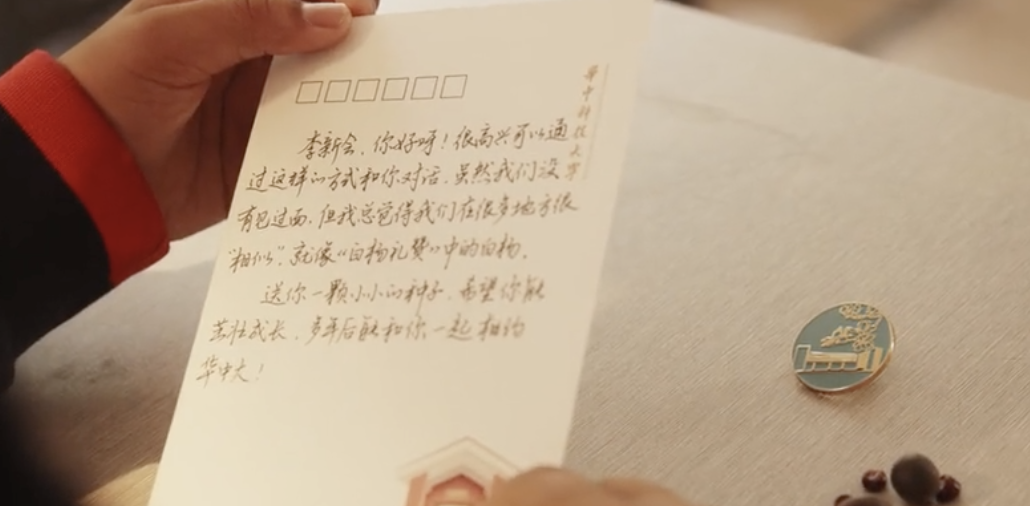 华中科技大学
李新会，你好呀！很高兴可以通
过这样的方式和你对话，虽然我们没
有见过面，但我总觉得我们在很多地方很
“相似”，就像“白杨礼赞”中的白杨。
送你一颗小小的种子，希望你能
茁壮成长，多年后能和你一起相约
华中大！